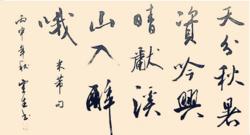 天分秋暑
资吟兴
晴献溪
山入醉
哦
米芾句
丙申年秋